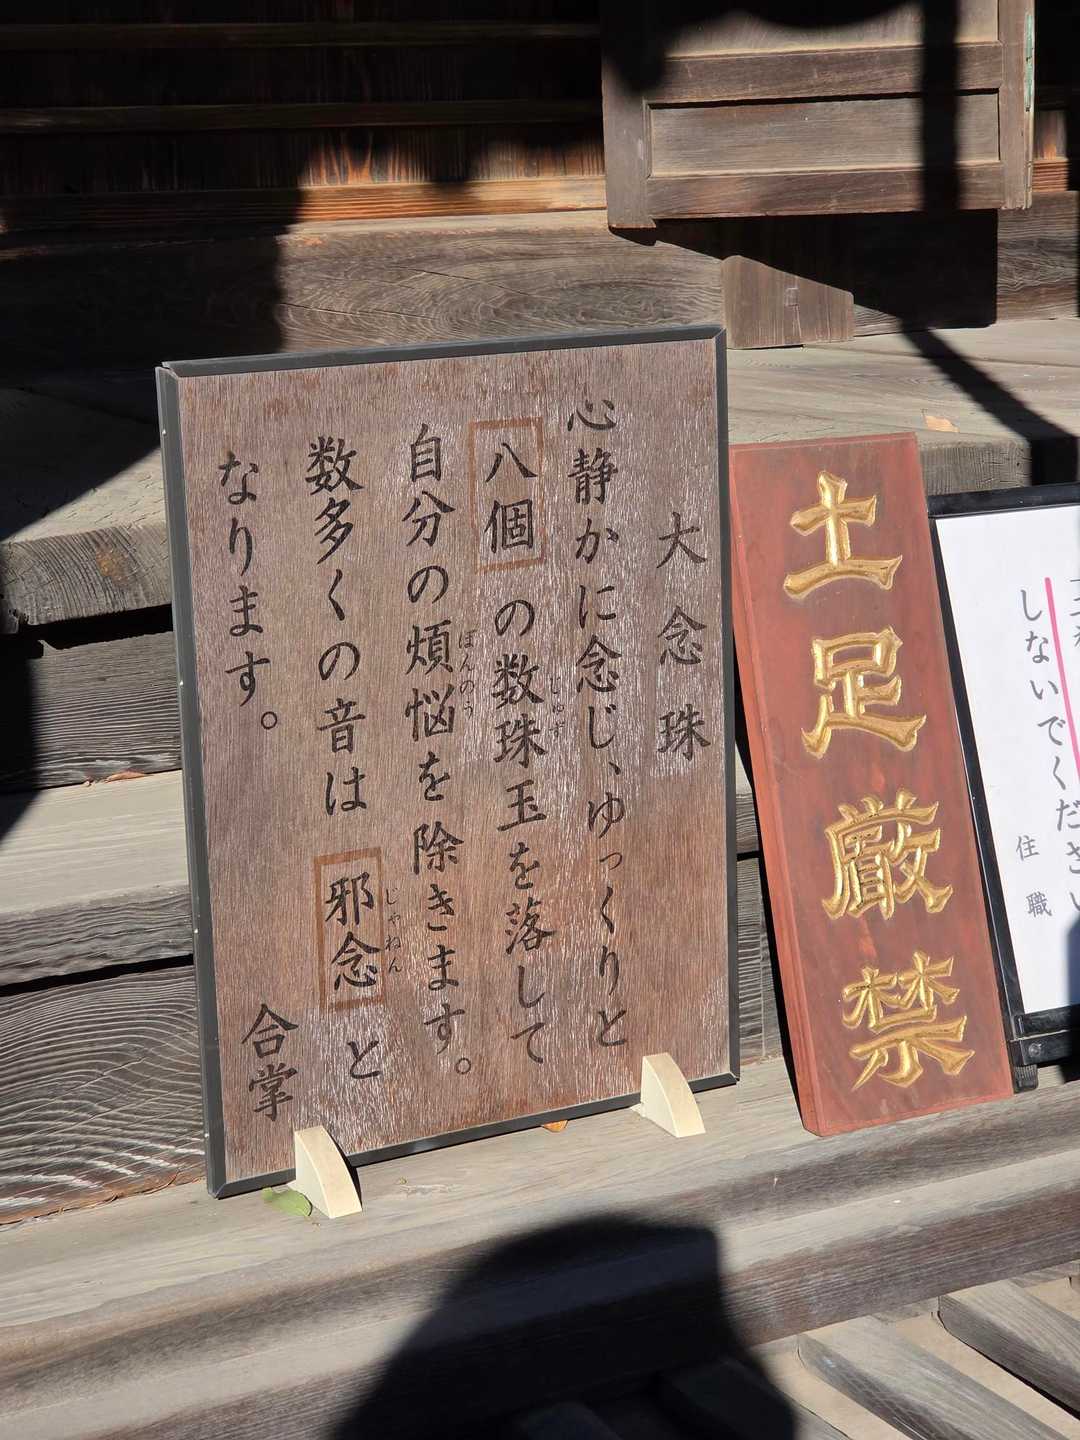 大念珠
心静かに念じ、ゆっくりと
八個の数珠玉を落して
じゅず
自分の煩悩を除きます。
ぼんのう
数多くの音は邪念と
じゃねん
なります。
合掌
土足厳禁
しないでください
住職